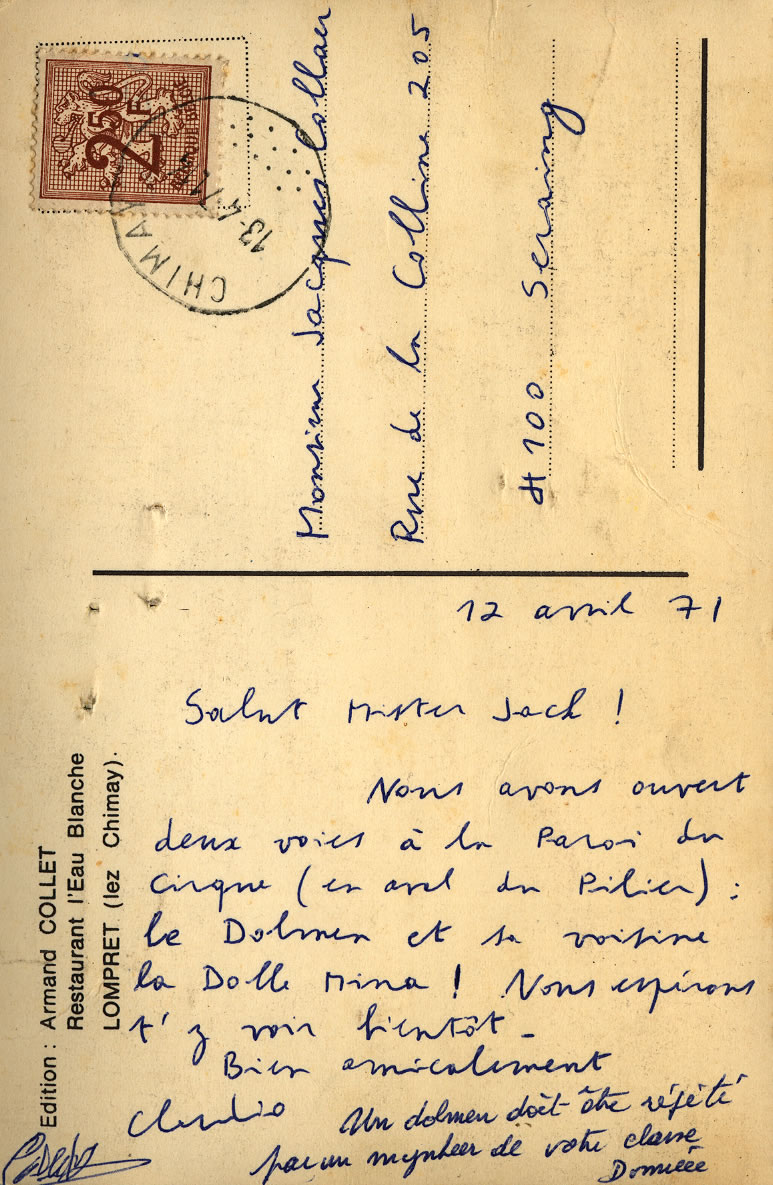 2F50
BELGIQUE-BELGIË
CHIMAY
13-4-71
Monsieur Jacques Collaer
Rue de la Colline 205
4100 Seraing
12 avril 71
Salut Mister Jack !
Nous avons ouvert
deux voies à la Paroi du
Cirque (en aval du Pilier) :
le Dolmen et sa voisine
la Dolle Mina ! Nous espérons
t'y voir bientôt _
Bien amicalement
Claudio
Un dolmen doit être répété
par un mynheer de votre classe
Edition : Armand COLLET
Restaurant l'Eau Blanche
LOMPRET (lez Chimay).